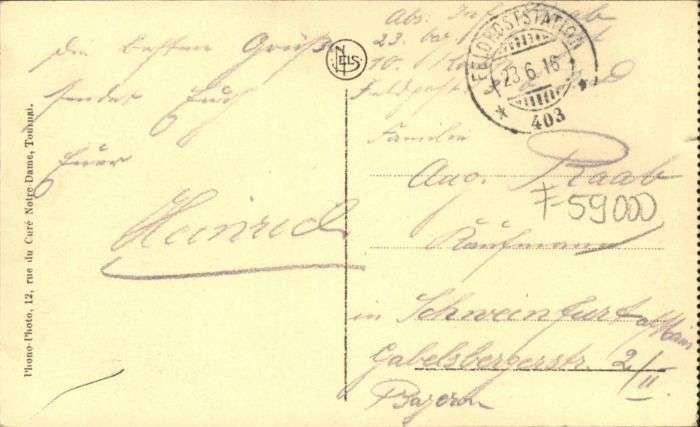 Die besten Grüße
sendet Euch
Euer
Heinrich
Phono-Photo, 12, rue du Curé Notre-Dame, Tournai.
NELS
Abs: Inf. Raab
23. bay.
10.
Feldpost
FELDPOSTSTATION
23.6.16
* 403 *
Familie
Aug. Raab
F-59000
Kaufmann
in Schweinfurt a/Main
Gabelsbergerstr. 2/II
Bayern